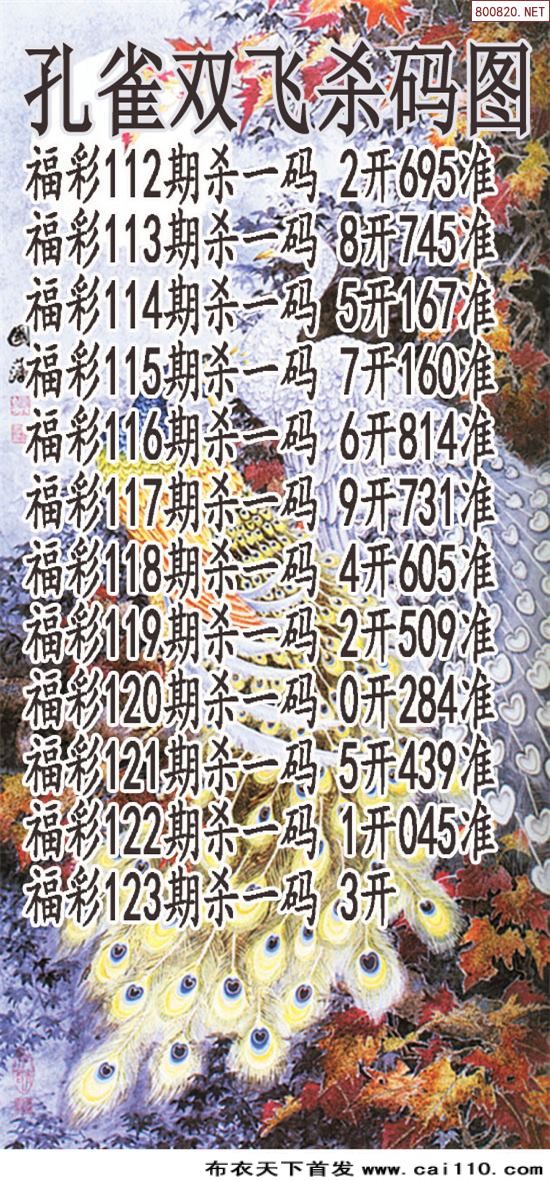 800820.NET
孔雀双飞杀码图
福彩112期杀一码 2开695准
福彩113期杀一码 8开745准
福彩114期杀一码 5开167准
福彩115期杀一码 7开160准
福彩116期杀一码 6开814准
福彩117期杀一码 9开731准
福彩118期杀一码 4开605准
福彩119期杀一码 2开509准
福彩120期杀一码 0开284准
福彩121期杀一码 5开439准
福彩122期杀一码 1开045准
福彩123期杀一码 3开
布衣天下首发 www.cai110.com